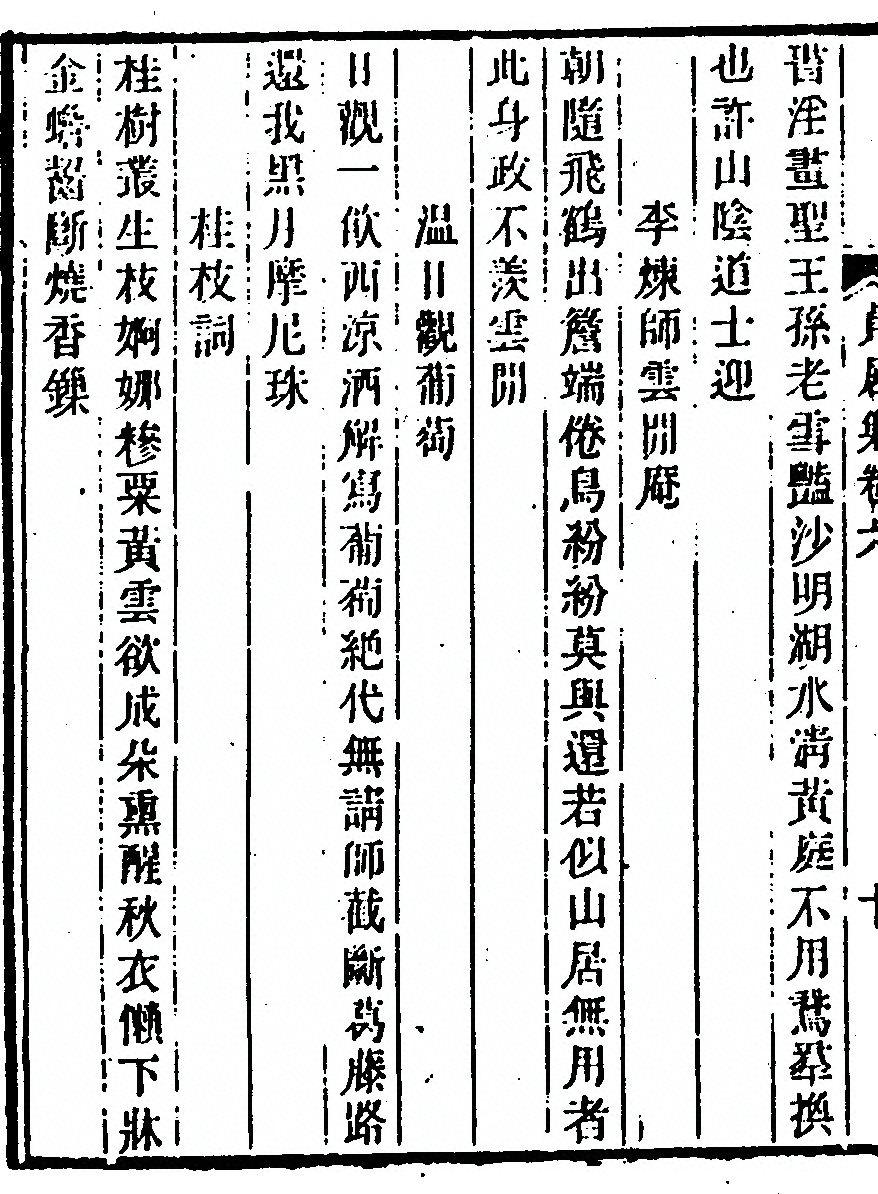 書淫畫聖王孫老雪豔沙明湖水清黃庭不用鵞羣換
也許山陰道士迎
李煉師雲閒庵
朝隨飛鶴出簷端倦鳥紛紛莫與還若似山居無用者
此身政不羨雲閒
温日觀葡萄
日觀一飲西涼酒解寫葡萄絶代無請師截斷葛藤路
還我黑月摩尼珠
桂枝詞
桂樹叢生枝婀娜糝粟黃雲欲成朵熏醒秋衣懶下牀
金蟾齧斷燒香鏁